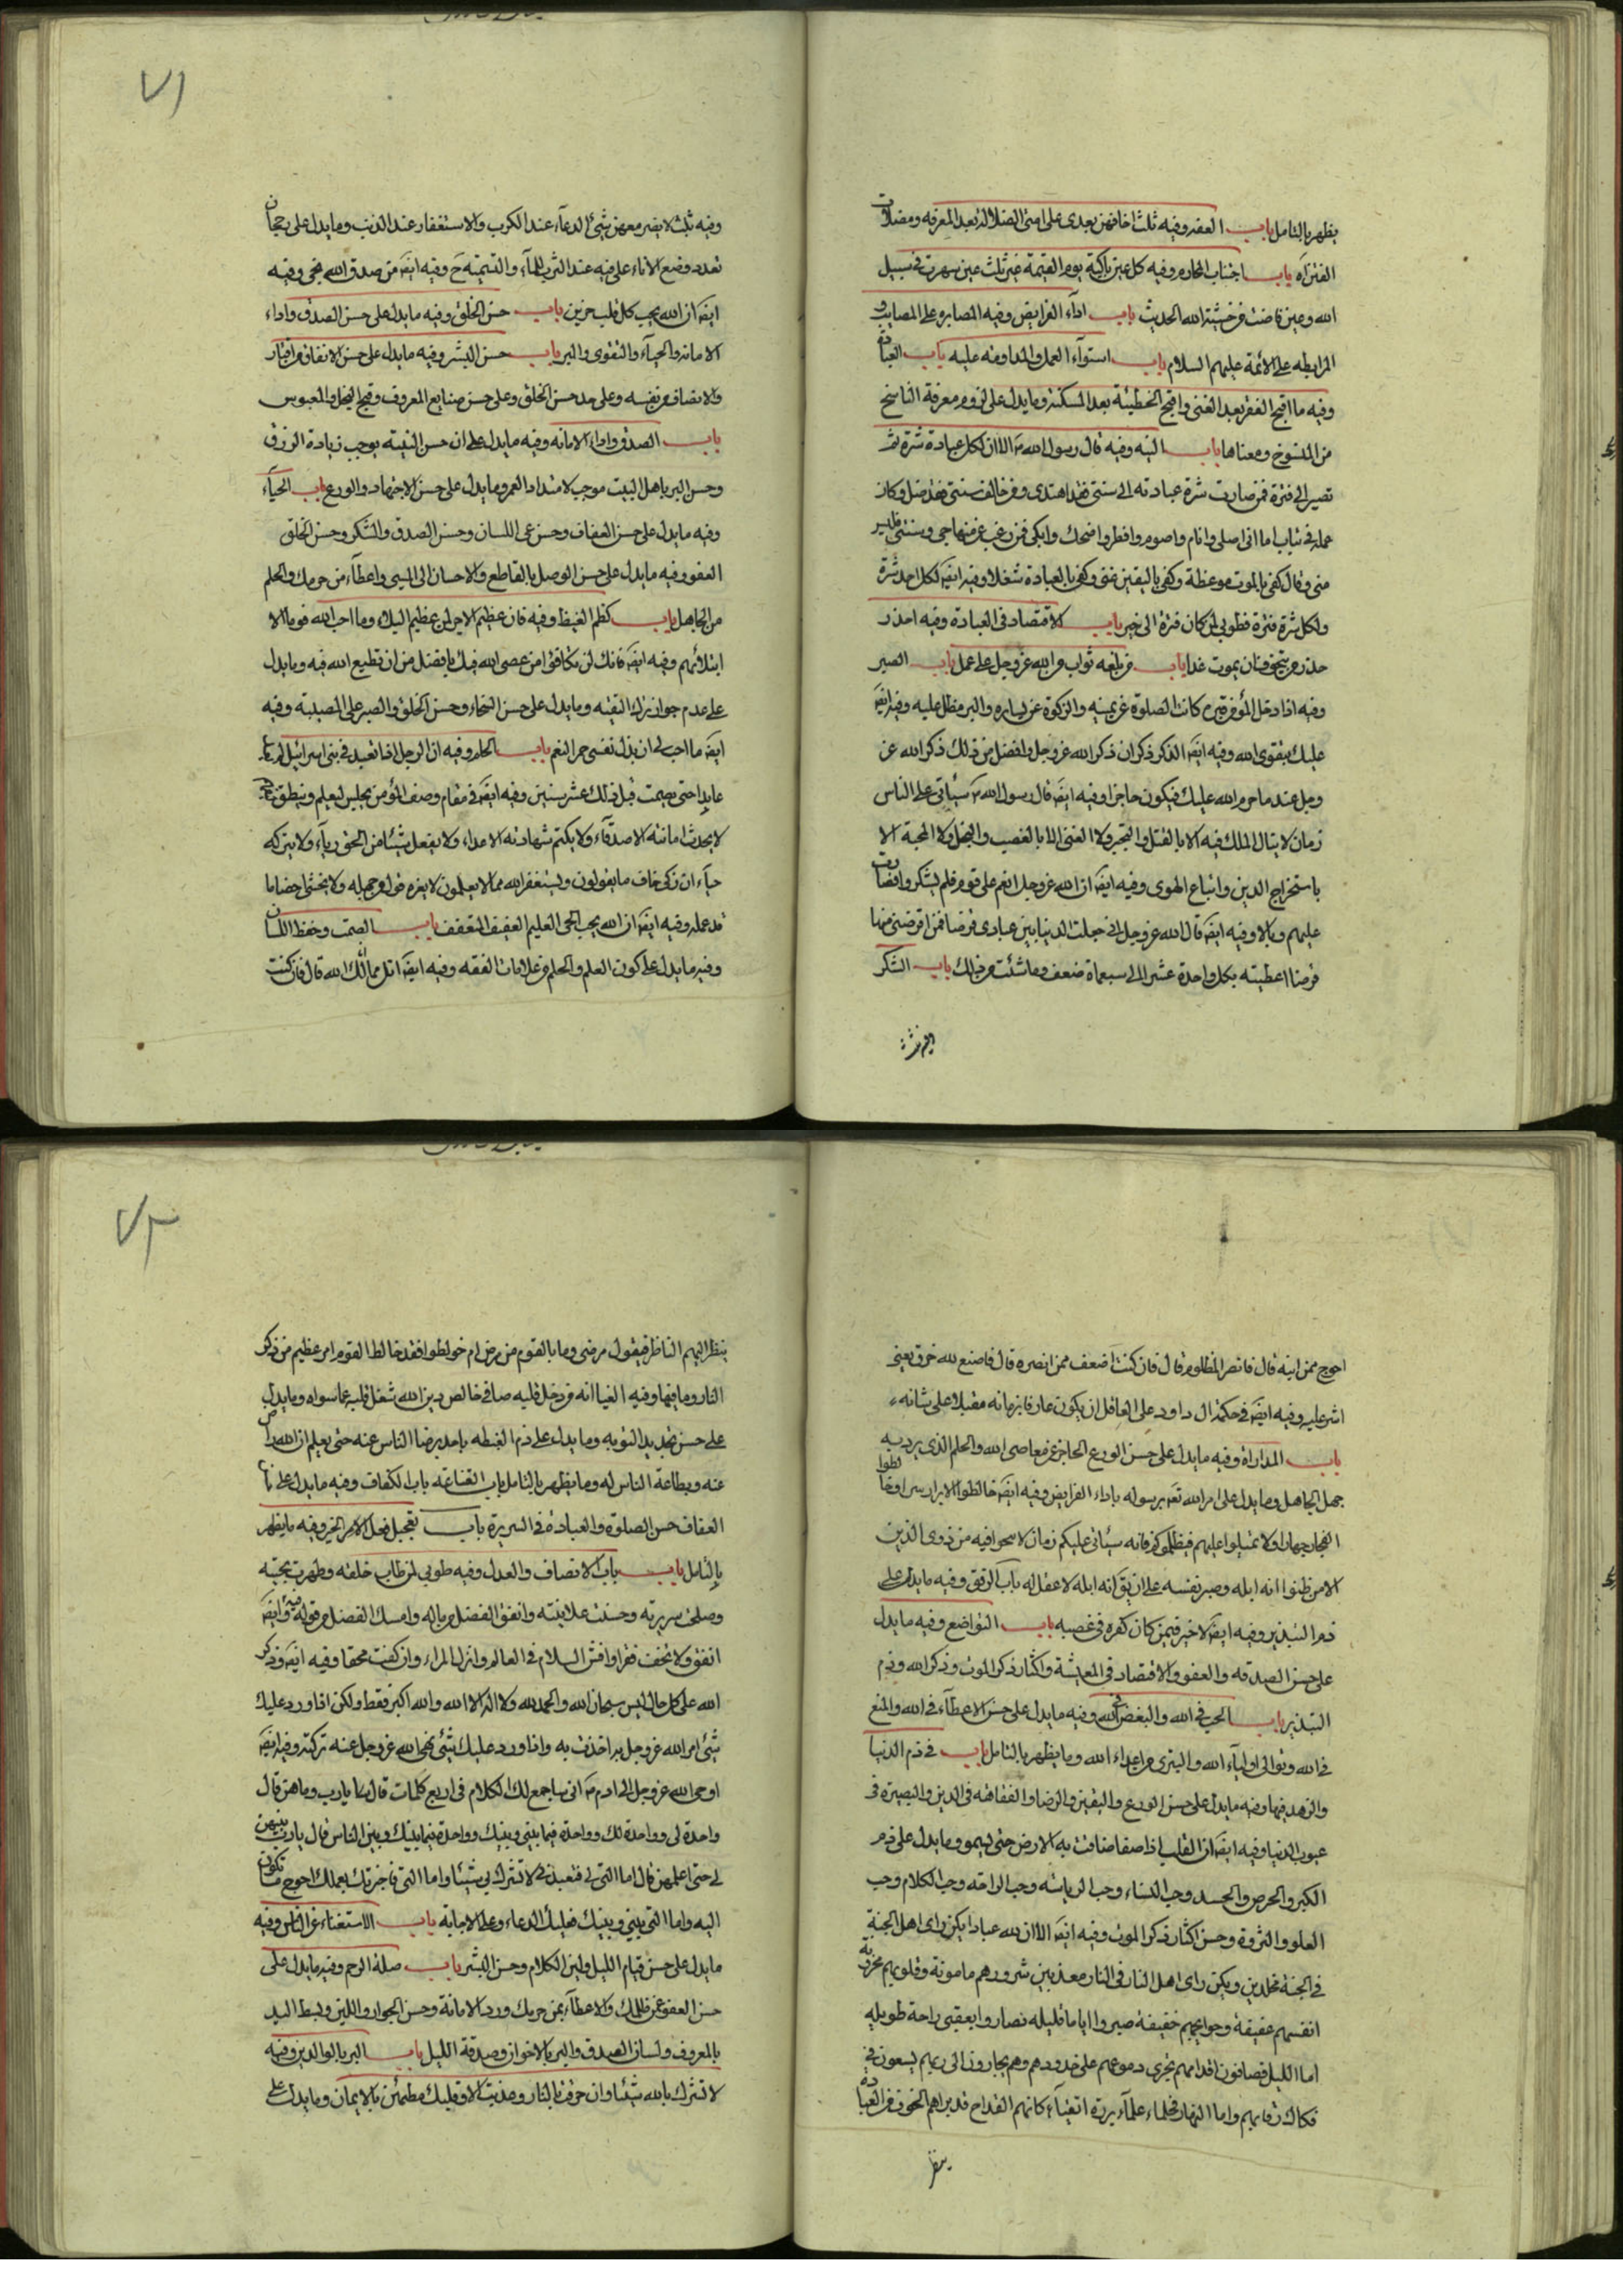 يظهر بالتامل باب العفه وفيه ثلث اخافهن بعدى على امتى الضلالة بعد المعرفه ومضلات
الفتن اه باب اجتناب المحارم وفيه كل عين باكية يوم القيمة غير ثلث عين سهرت فى سبيل
الله وعين فاضت من خشية الله الحديث باب اداء الفرايض وفيه المصابره على المصايب و
المرابطه على الائمة عليهم السلام باب استواء العمل والمداومه عليه باب العبادة
وفيه ما اقبح الفقر بعد الغنى واقبح الخطيئة بعد المسكنة وما يدل على لزوم معرفة الناسخ
من المنسوخ ومعناها باب النيه وفيه قال رسول الله ص الا ان لكل عبادة شرة ثم
تصير الى فترة فمن صارت شرة عبادته الى سنتى فقد اهتدى ومن خالف سنتى فقد ضل وكان
عمله فى تباب اما انى اصلى وانام واصوم وافطر واضحك وابكى فمن رغب عن منهاجى وسنتى فليس
منى وقال كفى بالموت موعظة وكفى باليقين غنى وكفى بالعبادة شغلا وفيه ايضَ لكل احد شرة
ولكل شرة فترة فطوبى لمن كان فترته الى خير باب الاقتصاد فى العبادة وفيه احذر
حذر من يتخوف ان يموت غدا باب من بلغه ثواب من الله عز وجل على عمل باب الصبر
وفيه اذا دخل المؤمن قبره كانت الصلوة عن يمينه والزكوة عن يساره والبر مظل عليه وفيه ايضَ
عليك بتقوى الله وفيه ايضَ الذكر ذكران ذكر الله عز وجل وافضل من ذلك ذكر الله عن
وجل عند ما حرم الله عليك فيكون حاجزا وفيه ايضَ قال رسول الله ص سيأتى على الناس
زمان لا ينال الملك فيه الا بالقتل والتجبر ولا الغنى الا بالغصب والبخل ولا المحبة الا
باستخراج الدين واتباع الهوى وفيه ايضَ ان الله عز وجل انعم على قوم فلم يشكروا فصارت
عليهم وبالا وفيه ايضَ قال الله عز وجل انى جعلت الدنيا بين عبادى قرضا فمن اقرضنى منها
قرضا اعطيته بكل واحدة عشرا الى سبعماة ضعف وما شئت من ذلك باب الشكر
٧١
وفيه ثلث لا يضر معهن شئ الدعاء عند الكرب والاستغفار عند الذنب وما يدل على رجحان
تعدد وضع الاناء على فيه عند الشرب للماء والتسميّة ح وفيه ايضَ من صدق الله نجى وفيه
ايضَ ان الله يحب كل قلب حزين باب حسن الخلق وفيه ما يدل على حسن الصدق واداء
الامانة والحياء والتقوى والبر باب حسن البشر وفيه ما يدل على حسن الانفاق من اقتار
والانصاف من نفسه وعلى حد حسن الخلق وعلى حسن صنايع المعروف وقبح البخل والعبوس
باب الصدق واداء الامانه وفيه ما يدل على ان حسن النية يوجب زيادة الرزق
وحسن البر باهل البيت موجب لامتداد العمر وما يدل على حسن الاجتهاد والورع باب الحياء
وفيه ما يدل على حسن العفاف وحسن عى اللسان وحسن الصدق والشكر وحسن الخلق
العفو وفيه ما يدل على حسن الوصل بالقاطع والاحسان الى المسى واعطاء من حرمك والحلم
من الجاهل باب كظم الغيظ وفيه فان عظيم الاجر لمن عظيم البلاء وما احب الله قوما الا
ابتلائهم وفيه ايضَ فانك لن تكافئ من عصى الله فيك بافضل من ان تطيع الله فيه وما يدل
على عدم جواز ترك التقية وما يدل على حسن السخاء وحسن الخلق والصبر على المصيبة وفيه
ايضَ ما احب لى ان بذل نفسى حمر النعم باب الحلم وفيه ان الرجل اذا تعبد فى بنى اسرائيل لم يعد
عابدا حتى يصمت قبل ذلك عشر سنين وفيه ايضَ فى مقام وصف المؤمن يجلس ليعلم وينطق
لا يحدث امانته الاصدقاء ولا يكتم شهادته الاعداء ولا يفعل شيئا من الحق رياء ولا يتركه
حياء ان زكى خاف ما يقولون ويستغفر الله مما لا يعلمون لا يغره قول من جهله ولا يخشى احصاء ما
قد عمله وفيه ايضَ ان الله يحب الحيى الحليم العفيف المتعفف باب الصمت وحفظ اللسان
وفيه ما يدل على كون العلم والحلم من علامات الفقه وفيه ايضَ انل مما انالك الله قال فان كنت
احوج ممن انيله قال فانصر المظلوم قال فان كنت اضعف ممن انصره قال فاصنع لله خرق يعنى
اشر عليه وفيه ايضَ فى حكمة ال داود على العاقل ان يكون عارفا بزمانه مقبلا على شانه
باب المداراة وفيه ما يدل على حسن الورع الحاجز عن معاصى الله والحلم الذى يرد به
جهل الجاهل وما يدل على امر الله تعَ برسوله باداء الفرايض وفيه ايضَ خالطوا الابرار سرا وخالطوا
الفجار جهارا ولا تميلوا عليهم فيظلموكم فانه سيأتى عليكم زمان لا ينجو فيه من ذوى الدين
الا من ظنوا انه ابله وصبر نفسه على ان يقَ انه ابله لا عقل له باب الرفق وفيه ما يدل على
ذم التبذير وفيه ايضَ لا خير فيمن كان كفره فى غضبه باب التواضع وفيه ما يدل
على حسن الصدقه والعفو والاقتصاد فى المعيشة واكثار ذكر الموت وذكر الله وذم
التبذير باب الحب فى الله والبغض فى الله وفيه ما يدل على حسن الاعطاء فى الله والمنع
فى الله وتوالى اولياء الله والتبرى من اعداء الله وما يظهر بالتامل باب فى ذم الدنيا
والزهد فيها وفيه ما يدل على حسن الورع واليقين والرضا والفقاهة فى الدين والبصيرة فى
عيوب الدنيا وفيه ايضَ ان القلب اذا صفا ضاقت به الارض حتى يسمو وما يدل على ذم
الكبر والحرص والحسد وحب النساء وحب الرياسه وحب الراحة وحب الكلام وحب
العلو والثروة وحسن اكثار ذكر الموت وفيه ايضَ الا ان لله عبادا يكن راى اهل الجنة
فى الجنة مخلدين ويكن راى اهل النار فى النار معذبين شرورهم مامونة وقلوبهم محزونة
انفسهم عفيفة وحوايجهم خفيفة صبروا اياما قليله فصاروا بعقبى راحة طويله
اما الليل فصافون اقدامهم تجرى دموعهم على خدودهم وهم يجارون الى ربهم يسعون فى
فكاك رقابهم واما النهار فحلماء علماء بررة اتقياء كانهم القداح قد براهم الخوف من العبادة
ينظر
٧٢
ينظر اليهم الناظر فيقول مرضى وما بالقوم من مرض ام خولطوا فقد خالط القوم امر عظيم من ذكر
النار وما فيها وفيه ايضا انه من دخل قلبه صافى خالص دين الله شغل قلبه عما سواه وما يدل
على حسن تجديد التوبه وما يدل على ذم الغبطه باحد برضا الناس عنه حتى يعلم ان الله راض
عنه وبطاعة الناس له وما يظهر بالتامل باب القناعة باب الكفاف وفيه ما يدل على
العفاف حسن الصلوة والعبادة فى السريرة باب تعجيل فعل الامر الخير وفيه ما يظهر
بالتامل باب باب الانصاف والعدل وفيه طوبى لمن طاب خلقه وطهرت سجيته
وصلحت سريرته وحسنت علانيته وانفق الفضل من ماله وامسك الفضل من قوله وفيه ايضَ
انفق ولا تخف فقرا وافش السلام فى العالم واترك المراء وان كنت محقا وفيه ايضَ وذكر
الله على كل حال ليس سبحان الله والحمد لله ولا اله الا الله والله اكبر فقط ولكن اذا ورد عليك
شئ امر الله عز وجل به اخذت به واذا ورد عليك شئ نهى الله عز وجل عنه تركته وفيه ايضَ
اوحى الله عز وجل الى ادم ع انى ساجمع لك الكلام فى اربع كلمات قال يا رب وما هن قال
واحدة لى وواحدة لك وواحدة فيما بينى وبينك وواحدة فيما بينك وبين الناس قال يا رب بينهن
لى حتى اعلمهن قال اما التى لى فتعبدنى لا تشرك بى شيئا واما التى لك فاجزيك بعملك احوج ما تكون
اليه واما التى بينى وبينك فعليك الدعاء وعلى الاجابة باب الاستغناء عن الناس وفيه
ما يدل على حسن قيام الليل ولين الكلام وحسن البشر باب صلة الرحم وفيه ما يدل على
حسن العفو عمن ظلمك والاعطاء بمن حرمك ورد الامانة وحسن الجوار واللين وبسط اليد
بالمعروف ولسان الصدق والبر بالاخوان وصدقة الليل باب البر بالوالدين وفيه
لا تشرك بالله شيئا وان حرقت بالنار وعذبت الا وقلبك مطمئن بالايمان وما يدل على